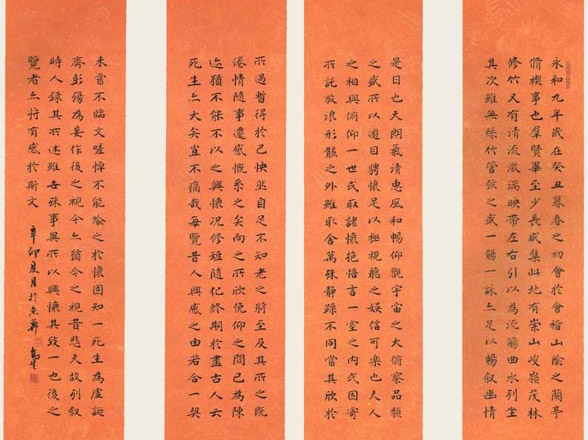 永和九年歲在癸丑暮春之初會於會稽山陰之蘭亭
脩禊事也羣賢畢至少長咸集此地有崇山峻嶺茂林
修竹又有清流激湍映帶左右引以為流觴曲水列坐
其次雖無絲竹管弦之盛一觴一詠亦足以暢叙幽情
是日也天朗氣清惠風和暢仰觀宇宙之大俯察品類
之盛所以遊目騁懷足以極視聽之娛信可樂也夫人
之相與俯仰一世或取諸懷抱悟言一室之內或因寄
所託放浪形骸之外雖取舍萬殊靜躁不同當其欣於
所遇暫得於己快然自足不知老之將至及其所之既
倦情隨事遷感慨系之矣向之所欣俛仰之間已為陳
迹猶不能不以之興懷況修短隨化終期於盡古人云
死生亦大矣豈不痛哉每覽昔人興感之由若合一契
未嘗不臨文嗟悼不能喻之於懷固知一死生為虛誕
齊彭殤為妄作後之視今亦猶今之視昔悲夫故列叙
時人錄其所述雖世殊事異所以興懷其致一也後之
覽者亦將有感於斯文
辛卯夏月於京華